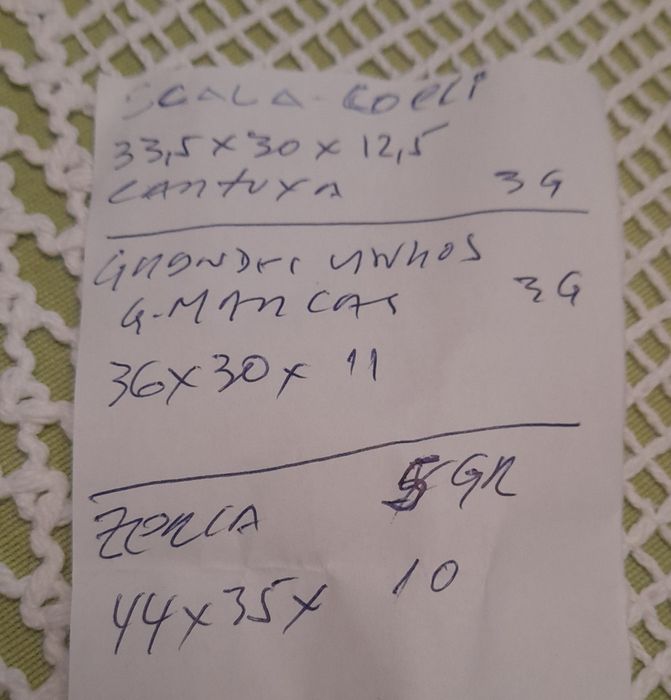 SCALA-COELI
33,5 x 30 x 12,5
CARTUXA 3G
GRANDES VINHOS
G-MARCAS 3G
36 x 30 x 11
5 GR
44 x 35 x 10